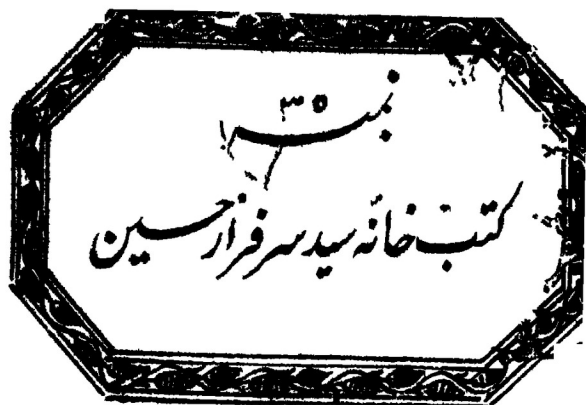 نمبر
کتب خانہ سید سرفراز حسین